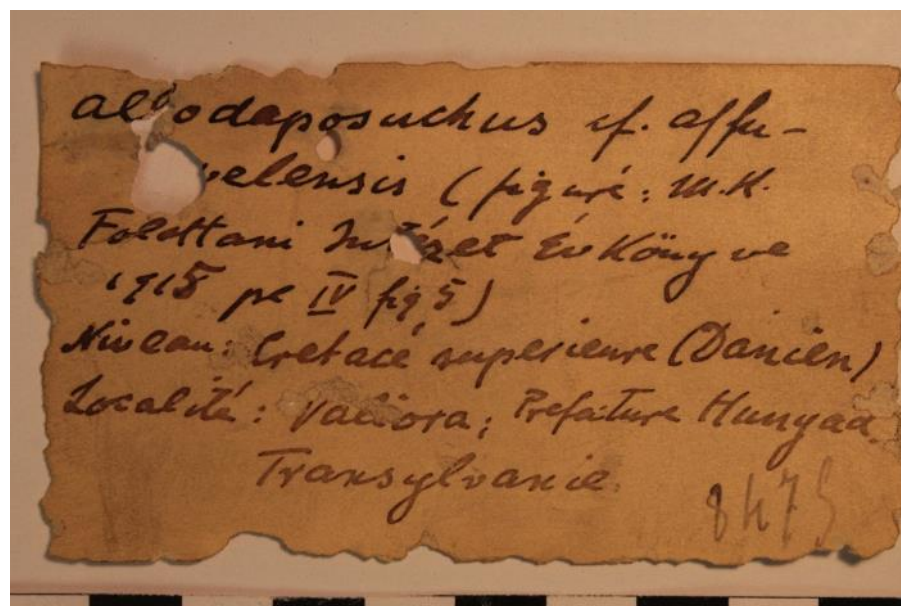 allodaposuchus cf. affu-
velensis (figuré: M.K.
Folottani Intézet Év Könyve
1915 pe IV fig 5)
Niveau: Cretacé superieure (Danien)
Localité: Valiora; Prefecture Hunyad
Transylvanie